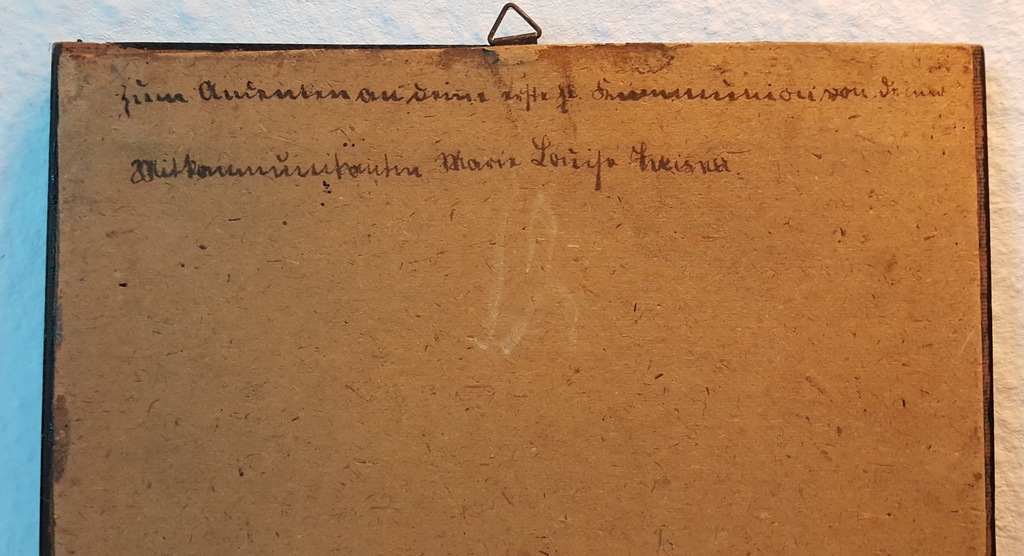 Zum Andenken an deine erste hl. Kommunion von deiner
Mitkommunikantin Marie Louise